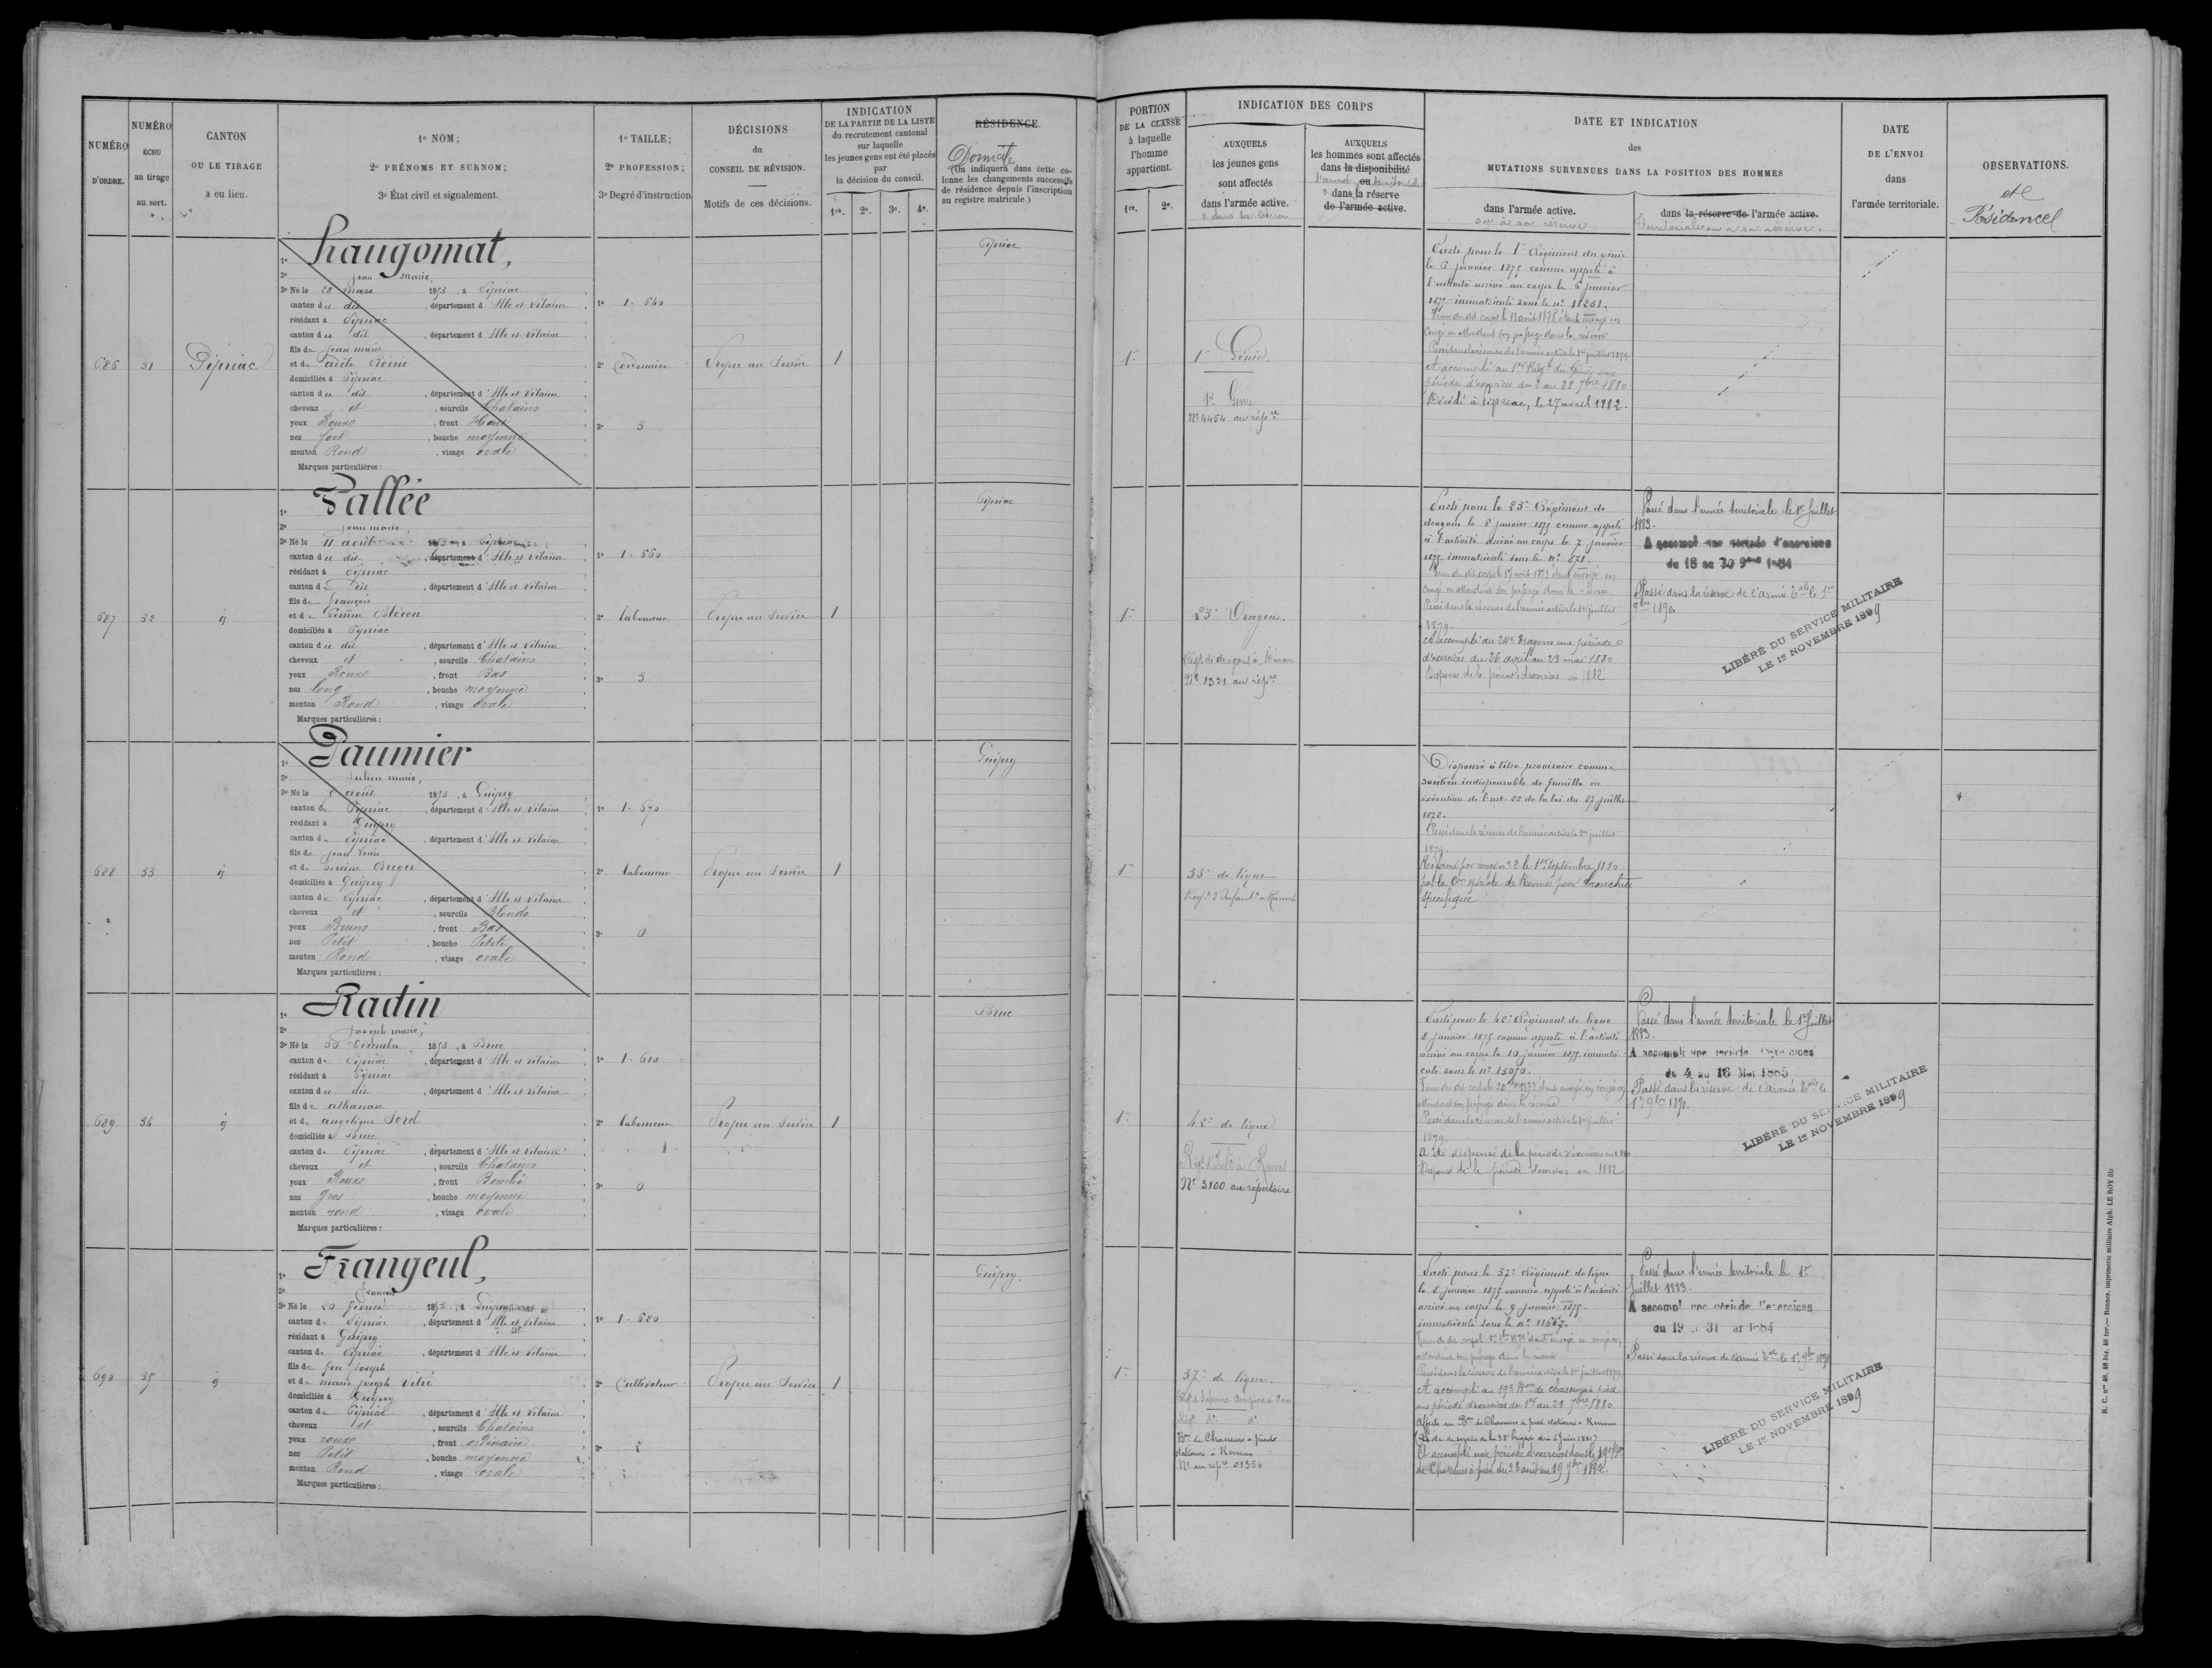 NUMÉRO
D'ORDRE.
NUMÉRO
ÉCHU
au tirage
au sort.
CANTON
OU LE TIRAGE
a eu lieu.
1º NOM;
2º PRÉNOMS ET SURNOM;
3º État civil et signalement.
1º TAILLE;
2º PROFESSION;
3º Degré d'instruction
DÉCISIONS
du
CONSEIL DE RÉVISION.
Motifs de ces décisions.
INDICATION
DE LA PARTIE DE LA LISTE
du recrutement cantonal
sur laquelle
les jeunes gens ont été placés
par
la décision du conseil.
1re. 2e. 3e. 4e.
RÉSIDENCE.
Domicile
(On indiquera dans cette co-
lonne les changements successifs
de résidence depuis l'inscription
au registre matricule.)
PORTION
DE LA CLASSE
à laquelle
l'homme
appartient.
1re. 2e.
INDICATION DES CORPS
AUXQUELS
les jeunes gens
sont affectés
dans l'armée active.
AUXQUELS
les hommes sont affectés
dans la disponibilité
ou
dans la réserve
de l'armée active.
DATE ET INDICATION
des
MUTATIONS SURVENUES DANS LA POSITION DES HOMMES
dans l'armée active.
ou à sa réserve
dans la réserve de l'armée active.
territoriale ou à sa réserve.
DATE
DE L'ENVOI
dans
l'armée territoriale.
OBSERVATIONS.
et
Résidences
686
31
Pipriac
1º
2º Jean Marie
3º Né le 28 mars 1853, à Pipriac
canton du dit, département d'Ille et Vilaine
résidant à Pipriac
canton du dit, département d'Ille et Vilaine
fils de Jean marie
et de
domiciliés à Pipriac
canton du dit, département d'Ille et Vilaine
cheveux et, sourcils Chatains
yeux Roux, front Haut
nez fort, bouche moyenne
menton Rond, visage ovale
Marques particulières :
1º 1. 640
2º Cordonnier
3º 3
Propre au Service
1
Pipriac
1re
1er Génie
1er Génie
Nº 4454 au rép.re
Parti pour le 1er Régiment du génie
le 6 janvier 1875 comme appelé à
l'activité arrivé au corps le 6 janvier
1875 immatriculé sous le nº 11251.
congé en attendant son passage dans la réserve
Passé dans la réserve de l'armée active le 1er juillet 1879.
A accompli au 1er Régt du Génie une
période d'exercices du 2 au 28 7bre 1880
Décédé à Pipriac, le 27 avril 1882.
687
32
id
1º Vallée
2º Jean marie,
3º Né le 11 avril 1853, à Pipriac
canton du dit, département d'Ille et Vilaine
résidant à Pipriac
canton du dit, département d'Ille et Vilaine
fils de François
et de Perrine
domiciliés à Pipriac
canton du dit, département d'Ille et Vilaine
cheveux et, sourcils Chatains
yeux Roux, front Bas
nez long, bouche moyenne
menton Rond, visage ovale
Marques particulières :
1º 1. 660
2º laboureur
3º 3
Propre au Service
1
Pipriac
1re
23e Dragons.
Régt de dragons à Dinan
Nº 1331 au rép.re
Parti pour le 23e Régiment de
dragons le 5 janvier 1875 comme appelé
à l'activité arrivé au corps le 7 janvier
1875 immatriculé sous le nº 871.
congé en attendant son passage dans la réserve
Passé dans la réserve de l'armée active le 1er juillet
1879.
A accompli au 24e Dragons une période
d'exercices du 26 avril au 23 mai 1880
Dispensé de la période d'exercices en 1882
Passé dans l'armée territoriale le 1er Juillet
1883.
A accompli une période d'exercices
du 18 au 30 9bre 1884
Passé dans la réserve de l'armée Tale le 1er
9bre 1890.
LIBÉRÉ DU SERVICE MILITAIRE
LE 1er NOVEMBRE 1899
688
33
id
1º Paumier
2º Julien marie,
3º Né le 5 août 1853, à Guipry
canton de Pipriac, département d'Ille et Vilaine
résidant à Guipry
canton de Pipriac, département d'Ille et Vilaine
fils de Jean Louis
et de Perrine
domiciliés à Guipry
canton de Pipriac, département d'Ille et Vilaine
cheveux et, sourcils Blonds
yeux Bruns, front Bas
nez Petit, bouche Petite
menton Rond, visage ovale
Marques particulières :
1º 1. 670
2º laboureur
3º 0
Propre au Service
1
Guipry
1re
35e de ligne
Régt d'Infanterie à Rennes
Dispensé à titre provisoire comme
soutien indispensable de famille en
exécution de l'art. 22 de la loi du 27 juillet
1872.
Passé dans la réserve de l'armée active le 1er juillet
1879.
Réformé par congé nº 2 le 1er Septembre 1880
par la Con spéciale de Rennes pour bronchite
spécifique
689
34
id
1º Radin
2º Joseph marie,
3º Né le 30 Décembre 1853, à Bruc
canton de Pipriac, département d'Ille et Vilaine
résidant à Pipriac
canton du dit, département d'Ille et Vilaine
fils de athanase
et de angélique
domiciliés à Bruc
canton de Pipriac, département d'Ille et Vilaine
cheveux et, sourcils Chatains
yeux Roux, front Bombé
nez gros, bouche moyenne
menton rond, visage ovale
Marques particulières :
1º 1. 610
2º laboureur
3º 0
Propre au Service
1
Bruc
1re
42e de ligne
Régt d'Infie à Rennes
Nº 3100 au répertoire
Parti pour le 42e Régiment de ligne
8 janvier 1875 comme appelé à l'activité
arrivé au corps le 10 janvier 1875 immatri-
culé sous le nº 13050.
attendant son passage dans la réserve
Passé dans la réserve de l'armée active le 1er juillet
1879.
A été dispensé de la période d'exercices en 1880
Dispensé de la période d'exercices en 1882
Passé dans l'armée territoriale le 1er Juillet
1883.
A accompli une période d'exercices
du 4 au 16 Mai 1885
Passé dans la réserve de l'armée Tale le
1er 9bre 1890.
LIBÉRÉ DU SERVICE MILITAIRE
LE 1er NOVEMBRE 1899
690
35
id
1º Frangeul,
2º François
3º Né le 20 février 1853, à Guipry
canton de Pipriac, département d'Ille et Vilaine
résidant à Guipry
canton de Pipriac, département d'Ille et Vilaine
fils de feu Joseph
et de marie Joseph Vitré
domiciliés à Guipry
canton de Pipriac, département d'Ille et Vilaine
cheveux et, sourcils Chatains
yeux roux, front ordinaire
nez Petit, bouche moyenne
menton Rond, visage ovale
Marques particulières :
1º 1. 620
2º Cultivateur
3º 2
Propre au Service
1
Guipry.
1re
37e de ligne.
Bon de Chasseurs à pieds
stationné à Rennes
Nº au rép.re 01354
Parti pour le 37e Régiment de ligne
le 8 janvier 1875 comme appelé à l'activité
arrivé au corps le 9 janvier 1875.
immatriculé sous le nº 11667.
attendant son passage dans la réserve
Passé dans la réserve de l'armée active le 1er juillet 1879
A accompli au 19e Bon de chasseurs à pied
une période d'exercices du 1er au 28 7bre 1880.
Affecté au Bon de Chasseurs à pied stationné à Rennes
A accompli une période d'exercices dans le 19e Bon
de Chasseurs à pied du 23 août au 19 7bre 1882.
Passé dans l'armée territoriale le 1er
Juillet 1883.
A accompli une période d'exercices
du 19 au 31 1884
Passé dans la réserve de l'armée Tale le 1er 9bre 1890
LIBÉRÉ DU SERVICE MILITAIRE
LE 1er NOVEMBRE 1899
R. C. nos 48, 48 bis, 48 ter.— Rennes, imprimerie militaire Alph. LE ROY fils